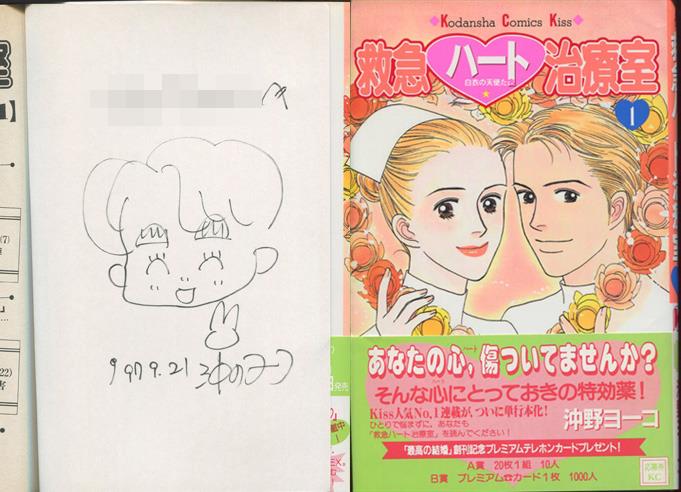 1】
(7)
(22)
害
へ
1997.9.21
発売
Kodansha Comics Kiss
救急ハート治療室
白衣の天使たち
1
あなたの心、傷ついてませんか？
ハート
そんな心にとっておきの特効薬！
Kiss人気No.1連載が、ついに単行本化！
ひとりで悩まずに、あなたも
「救急ハート治療室」を読んでください！
沖野ヨーコ
「最高の結婚」創刊記念プレミアムテレホンカードプレゼント！
A賞 20枚1組 10人
B賞 プレミアム☆カード1枚 1000人
応募券
KC